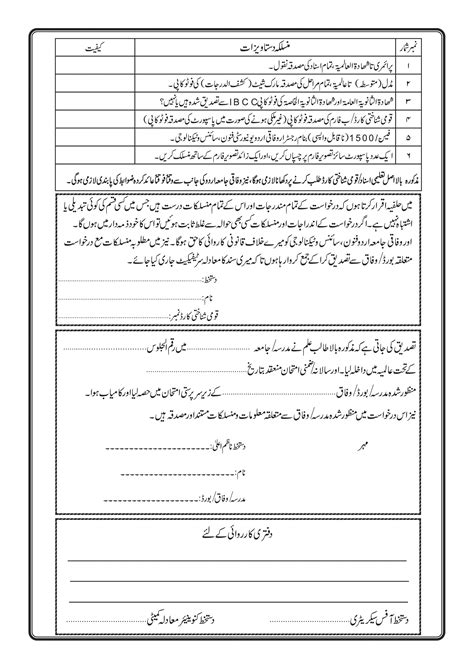 نمبر شمار منسلکہ دستاویزات کیفیت
۱ پرائمری تا شھادۃ العالمیۃ ، تمام اسناد کی مصدقہ نقول۔
۲ مڈل (متوسطہ) تا عالمیۃ، تمام مراحل کی مصدقہ مارک شیٹ (کشف الدرجات) کی فوٹو کاپی۔
۳ شھادۃ الثانویۃ العامۃ اور شھادۃ الثانویۃ الخاصۃ کی فوٹو کاپی IBCC سے تصدیق شدہ ہیں یا نہیں؟
۴ قومی شناختی کارڈ/ ب فارم کی مصدقہ فوٹو کاپی (غیر ملکی ہونے کی صورت میں پاسپورٹ کی مصدقہ فوٹو کاپی)
۵ فیس/1500 (ناقابل واپسی) بنام رجسٹرار وفاقی اردو یونیورسٹی فنون، سائنس و ٹیکنالوجی۔
۶ ایک عدد پاسپورٹ سائز تصویر فارم پر چسپاں کریں، اور ایک زائد تصویر فارم کے ساتھ منسلک کریں۔
مذکورہ بالا اصل تعلیمی اسناد/قومی شناختی کارڈ طلب کرنے پر دکھانا لازمی ہوگا، نیز وفاقی جامعہ اردو کی جانب سے وقتاً فوقتاً عائد کردہ ضوابط کی پابندی لازمی ہوگی۔
میں حلفیہ اقرار کرتا ہوں کہ درخواست کے تمام مندرجات اور اس کے تمام منسلکات درست ہیں جس میں کسی قسم کی کوئی تبدیلی یا
اشتباہ نہیں ہے۔ اگر درخواست کے اندراجات اور منسلکات میں سے کسی بھی حوالہ سے غلط ثابت ہوئیں تو اس کا خود ذمہ دار میں ہوں گا
اور وفاقی جامعہ اردو فنون، سائنس و ٹیکنالوجی کو میرے خلاف قانونی کارروائی کا حق ہوگا۔ نیز میں مطلوبہ منسلکات مع درخواست
متعلقہ بورڈ/وفاق سے تصدیق کرا کے جمع کروا رہا ہوں تاکہ میری سند کا معادلہ سرٹیفکیٹ جاری کیا جائے۔
دستخط:
نام:
قومی شناختی کارڈ نمبر:
تصدیق کی جاتی ہے کہ مذکورہ بالا طالب علم نے مدرسہ/جامعہ میں رقم الجلوس
کے تحت عالمیہ میں داخلہ لیا۔ اور سالانہ/ضمنی امتحان منعقدہ بتاریخ
منظور شدہ مدرسہ/بورڈ/وفاق کے زیر سرپرستی امتحان میں حصہ لیا اور کامیاب ہوا۔
نیز اس درخواست میں منظور شدہ مدرسہ/بورڈ/وفاق سے متعلقہ معلومات و منسلکات مستند اور مصدقہ ہیں۔
مہر دستخط ناظم اعلیٰ:
نام:
مدرسہ/وفاق/بورڈ:
دفتری کارروائی کے لئے
دستخط آفس سیکریٹری دستخط کنوینئر معادلہ کمیٹی